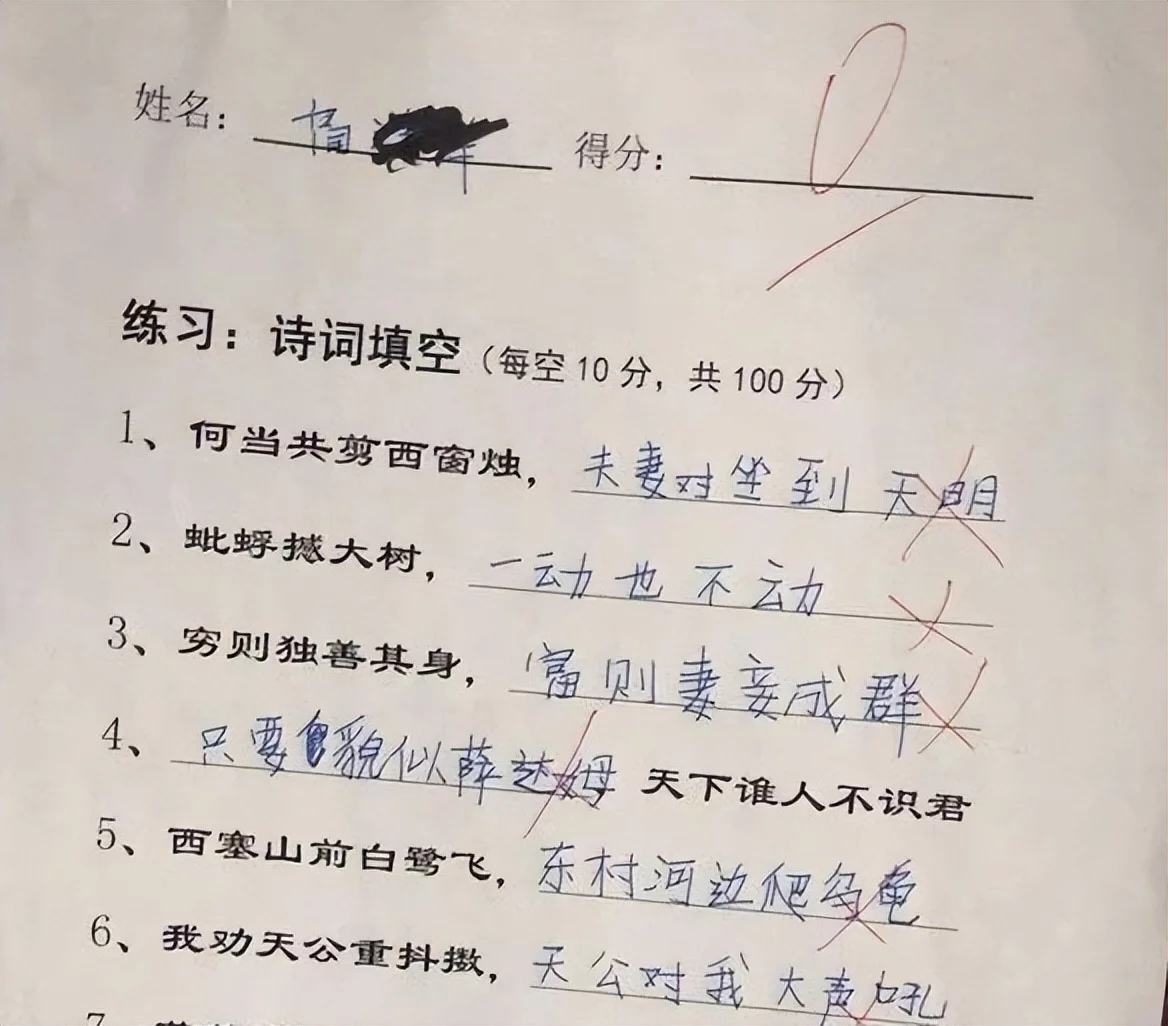 姓名： 得分： 0
练习：诗词填空（每空10分，共100分）
1、何当共剪西窗烛，夫妻对坐到天明
2、蚍蜉撼大树，一动也不动
3、穷则独善其身，富则妻妾成群
4、只要貌似薛达姆 天下谁人不识君
5、西塞山前白鹭飞，东村河边爬乌龟
6、我劝天公重抖擞，天公对我大声吼
7、